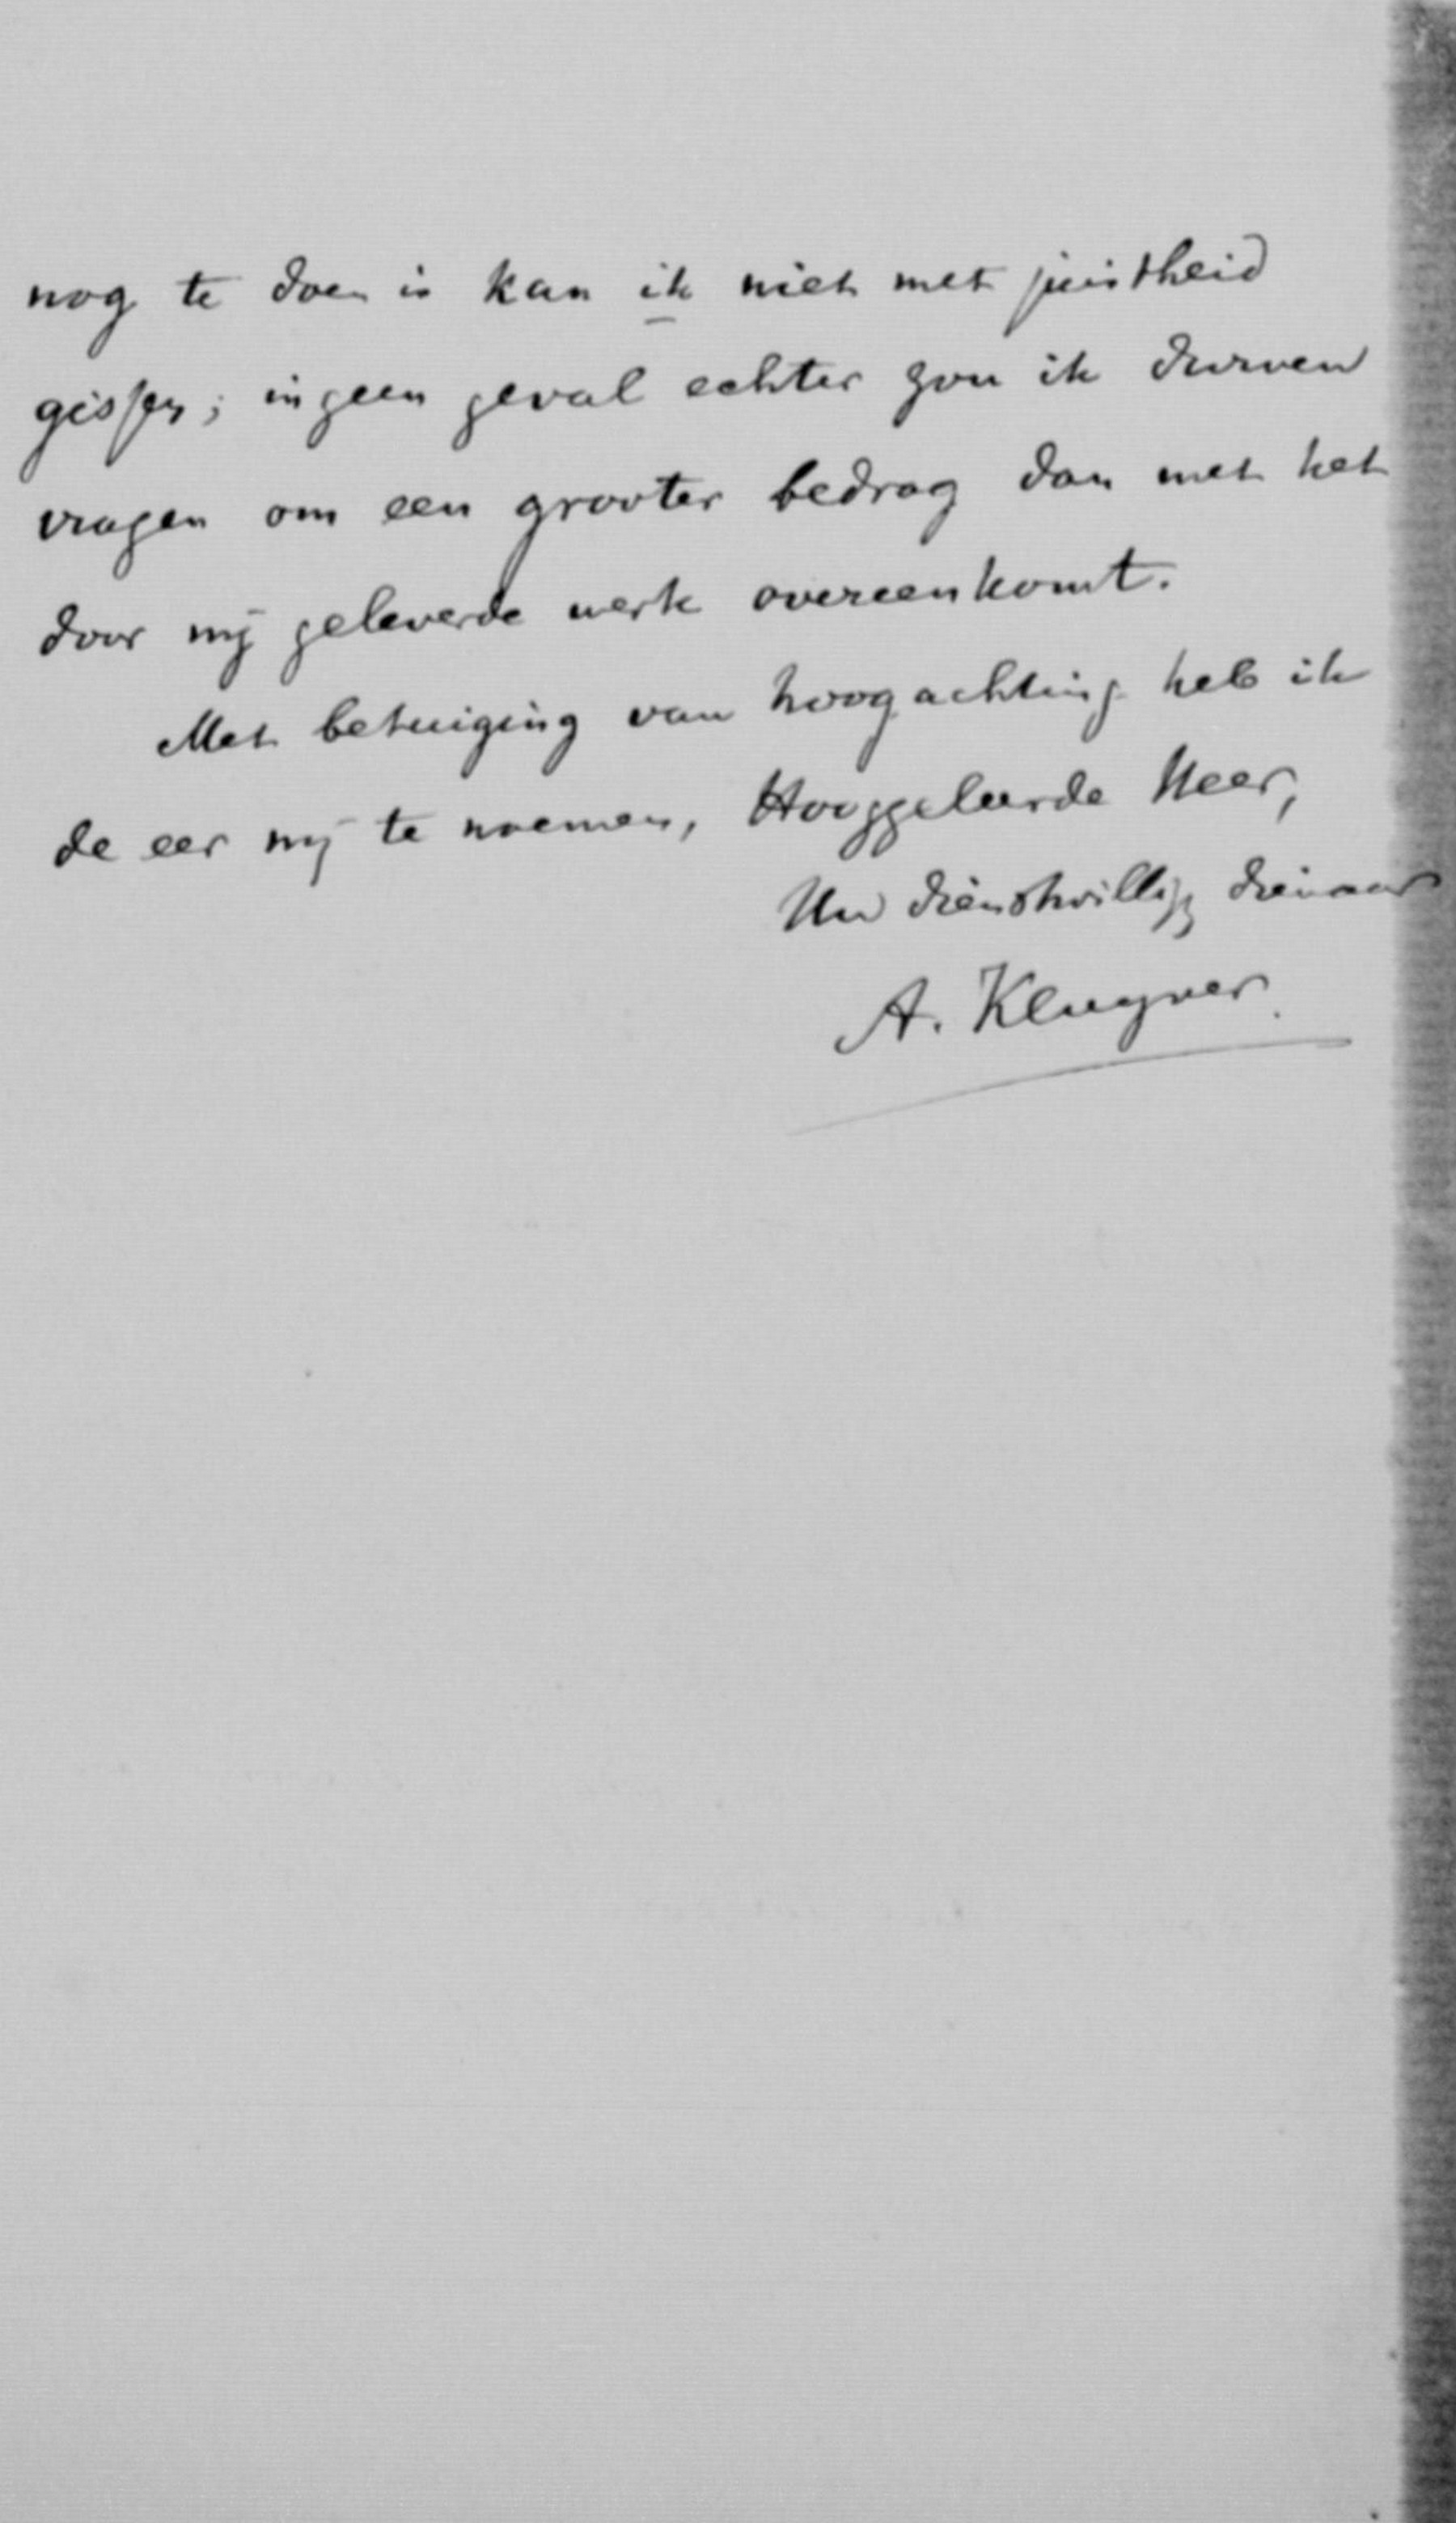 nog te doen is kan ik niet met juistheid
gissen; in geen geval echter zou ik durven
vragen om een grooter bedrag dan met het
door mij geleverde werk overeenkomt.
Met betuiging van hoogachting heb ik
de eer mij te noemen, Hooggeleerde Heer,
Uw dienstwillige dienaar
A. Kluyver